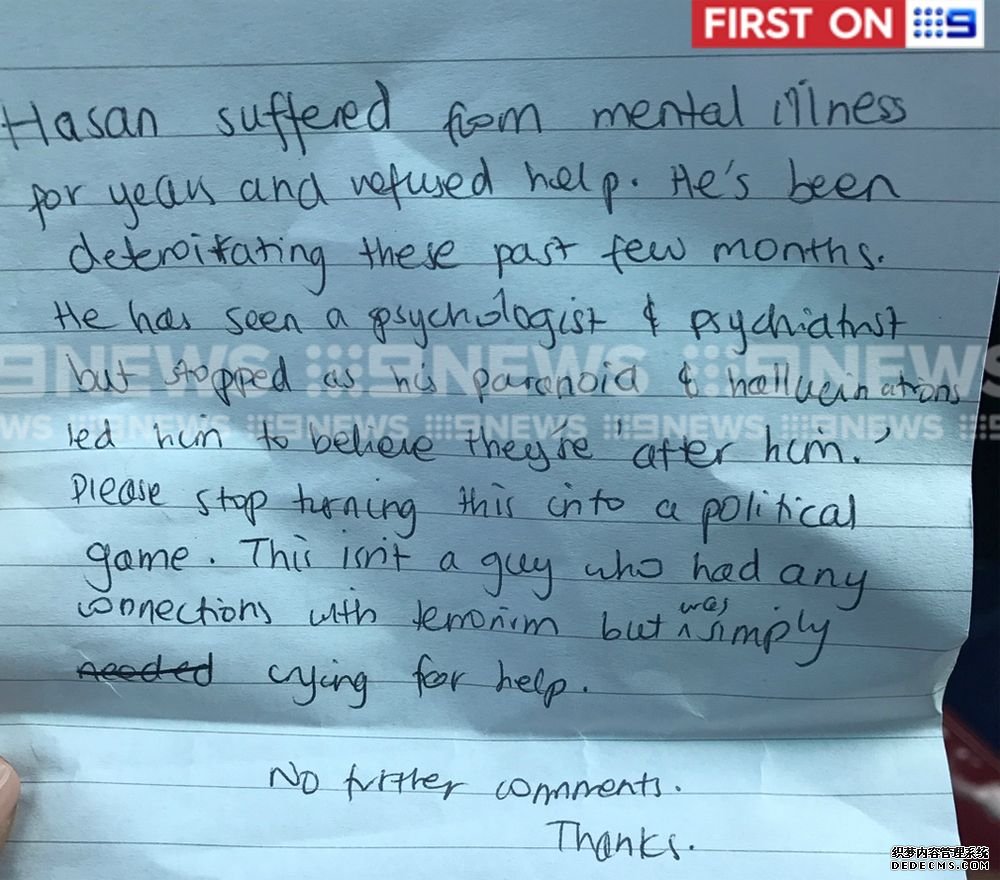 FIRST ON 9
Hasan suffered from mental illness
for years and refused help. He's been
deteroitating these past few months.
He has seen a psychologist & psychiatrist
9NEWS 9NEWS 9NEWS
but stopped as his paranoia & hallucinations
WS 9NEWS 9NEWS 9NEWS 9NEWS 9NEWS
led him to believe they're 'after him.'
Please stop turning this into a political
game. This isn't a guy who had any
connections with terrorism but was simply
needed crying for help.
No further comments.
Thanks.
织梦内容管理系统
DEDECMS.COM